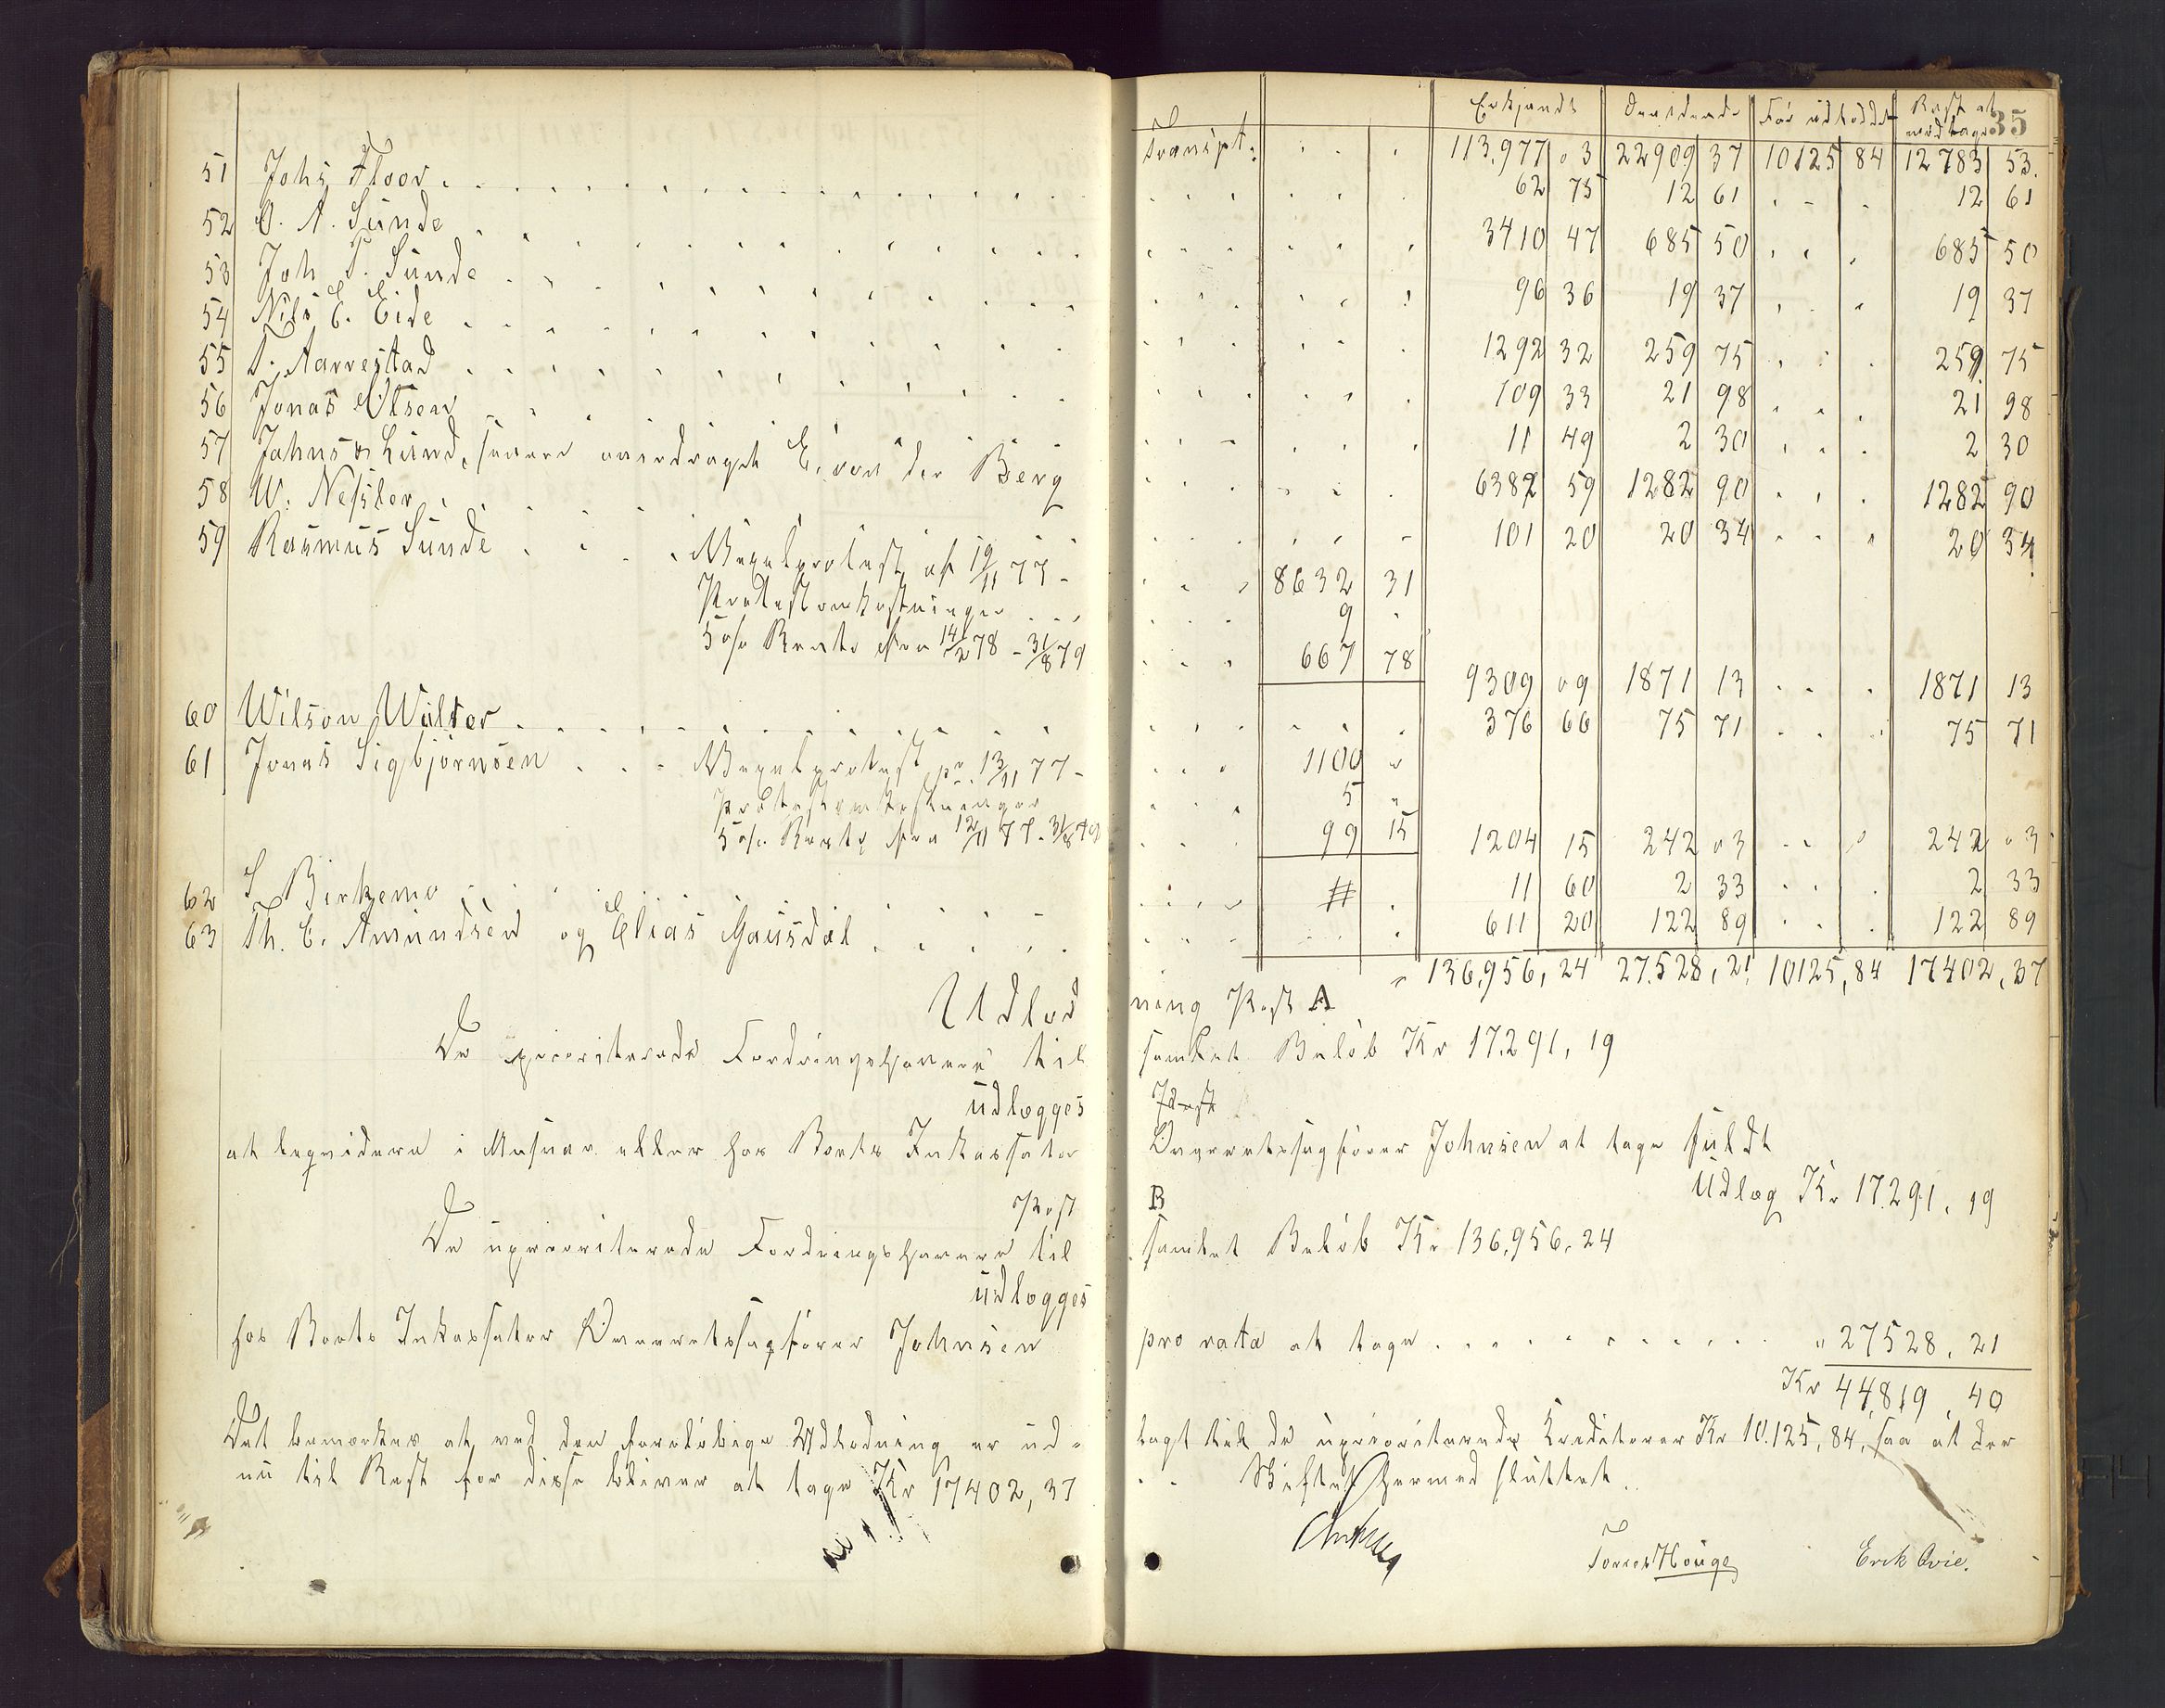 Erkjendt Dividende Før udloddet Rest at modtage 35
Transpt: 113,977 03 22909 37 10125 84 12783 53.
51 Johs Floor 62 75 12 61 12 61
52 O. A. Sunde 3410 47 685 50 685 50
53 Joh T. Sunde 96 36 19 37 19 37
54 Nils E. Eide 1292 32 259 75 259 75
55 T. Aarrestad 109 33 21 98 21 98
56 Jonas Olsen 11 49 2 30 2 30
57 Jahns & Lund, senere overdraget E. von der Berg 6382 59 1282 90 1282 90
58 W. Nessler 101 20 20 34 20 34
59 Rasmus Sunde Vexelprotest af 19/11 77 - 8632 31
Protestomkostninger 9
5 o/o Rente fra 14/2 78 - 31/8 79 667 78 9309 09 1871 13 1871 13
60 Wilson Walter 376 66 75 71 75 71
61 Jonas Sigbjørnsen Vexelprotest pr. 13/11 77 - 1100 "
Protestomkostninger 5 "
5 o/o Rente fra 12/11 77 - 31/8 79 99 15 1204 15 242 03 242 03
62 S Birkemo # 11 60 2 33 2 33
63 Th. E. Amundsen og Elias Gausdal 611 20 122 89 122 89
136,956, 24 27.528, 21 10125, 84 17402, 37
Udlodning Post A
De prioriterede Fordringshavere til samlet Beløb Kr 17.291, 19
udlægges
at liqvidere i Masuar eller hos Boets Inkassator Overretssagfører Johnsen at tage fuldt
Udlæg Kr 17.291, 19
Post B
De uprioriterede Fordringshavere til samlet Beløb Kr 136,956, 24
udlægges
hos Boets Inkassator Overretssagfører Johnsen pro rata at tage " 27528, 21
Kr 44,819, 40
Det bemærkes at ved den foreløbige Udlodning er udlagt til de uprioriterede Kreditorer Kr 10.125, 84, saa at der
nu til Rest for disse bliver at tage Kr 17402, 37 Skiftet hermed sluttet.
Torres Houge Erik Qvie.